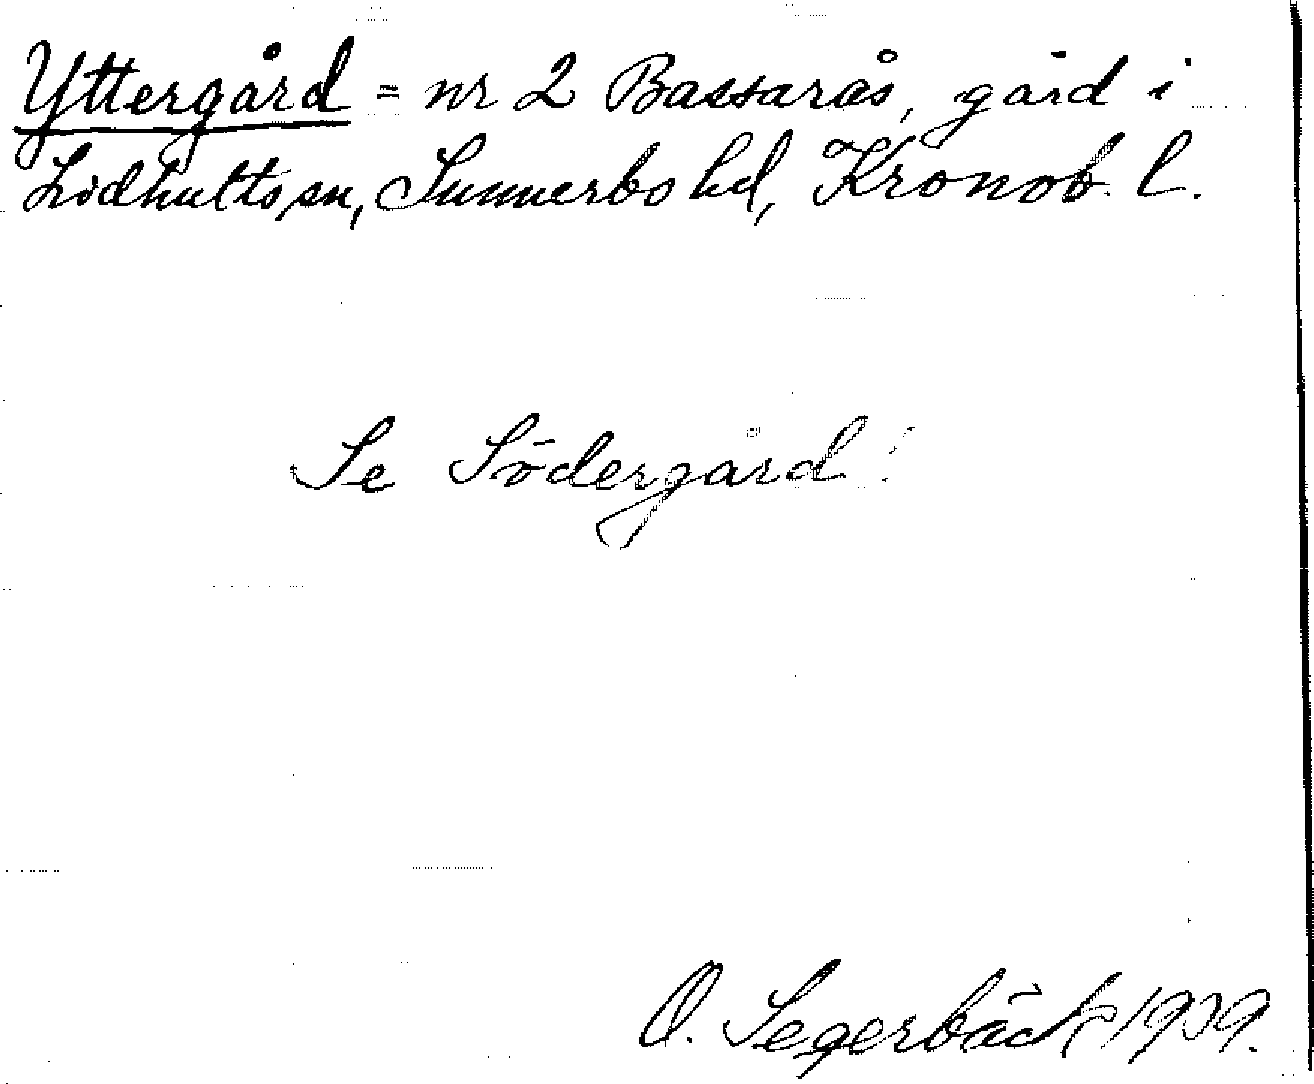 Yttergård = nr 2 Bassarås, gård i
Lidhults sn, Sunnerbo hd, Kronob. l.
Se Södergård!
O. Segerbäck 1939.